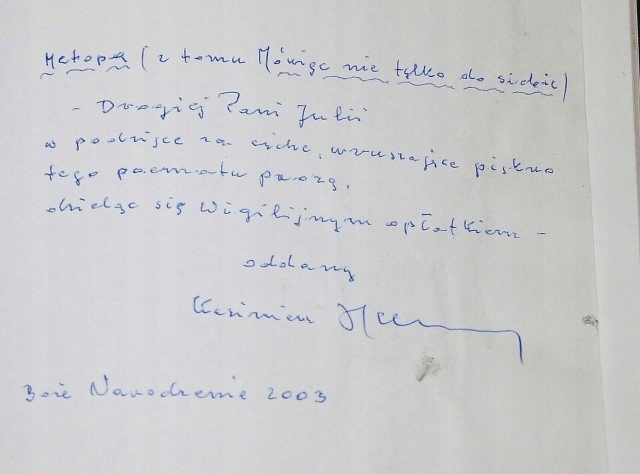 Metopa (z tomu Mówiąc nie tylko do siebie)
- Drogiej Pani Julii
w podzięce za ciche, wzruszające piękno
tego poematu prozą,
dzieląc się Wigilijnym opłatkiem -
oddany
Kazimierz
Boże Narodzenie 2003